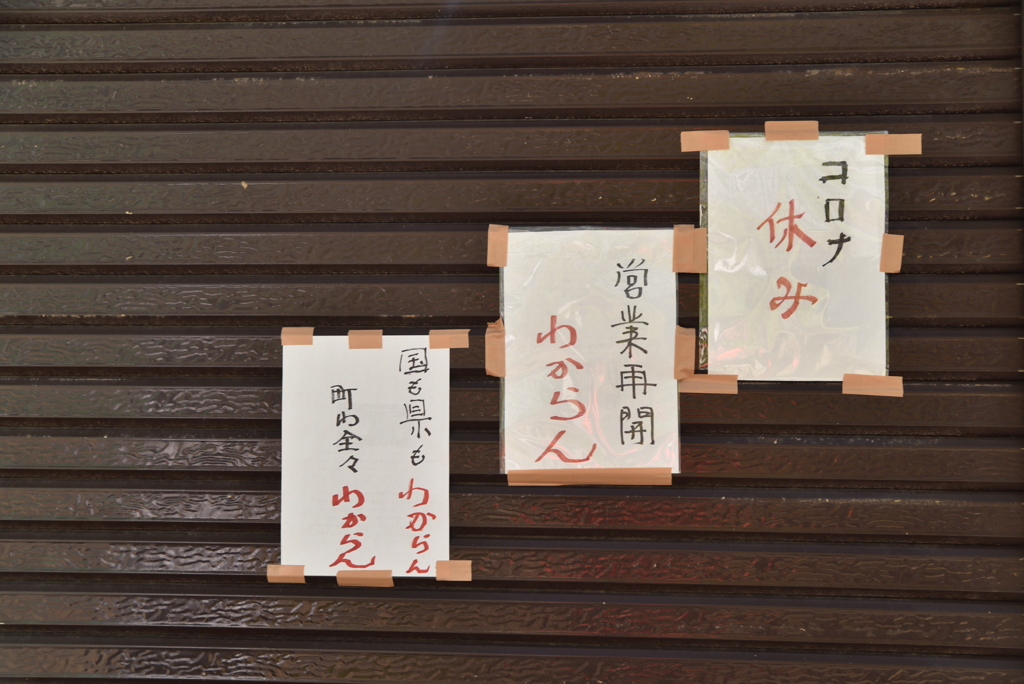 コロナ
休み
営業再開
わからん
国も県もわからん
町わ全々わからん